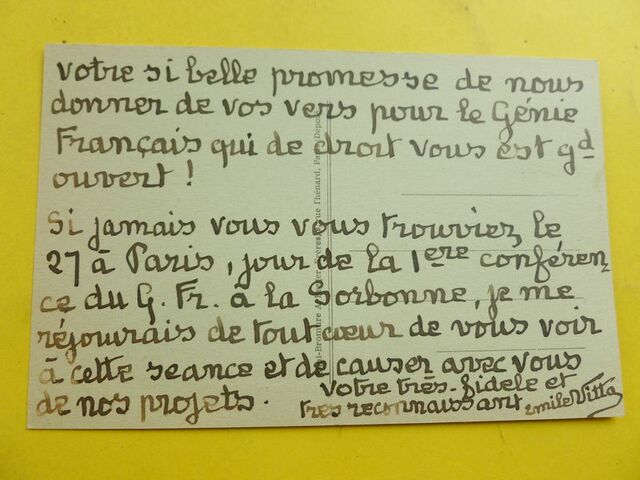 votre si belle promesse de nous
donner de vos vers pour le Génie
Français qui de droit vous est gd
ouvert !
Si jamais vous vous trouviez le
27 à Paris, jour de la 1ere conféren-
ce du G. Fr. à la Sorbonne, je me
réjouirais de tout cœur de vous voir
à cette seance et de causer avec vous
de nos projets.
votre très-fidele et
tres reconnaissant emile Vitta
rue Thénard, Paris